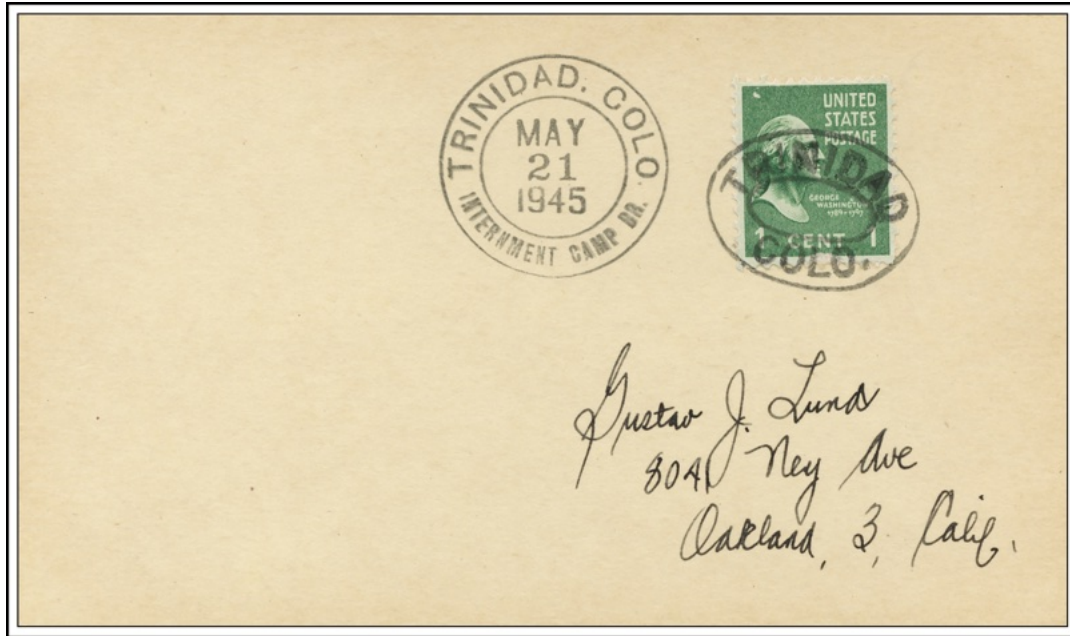 TRINIDAD, COLO
MAY
21
1945
INTERNMENT CAMP BR.
UNITED
STATES
POSTAGE
GEORGE
WASHINGTON
1789-1797
1 CENT 1
TRINIDAD
COLO.
Gustav J. Lund
8041 Ney Ave
Oakland, 3, Calif.